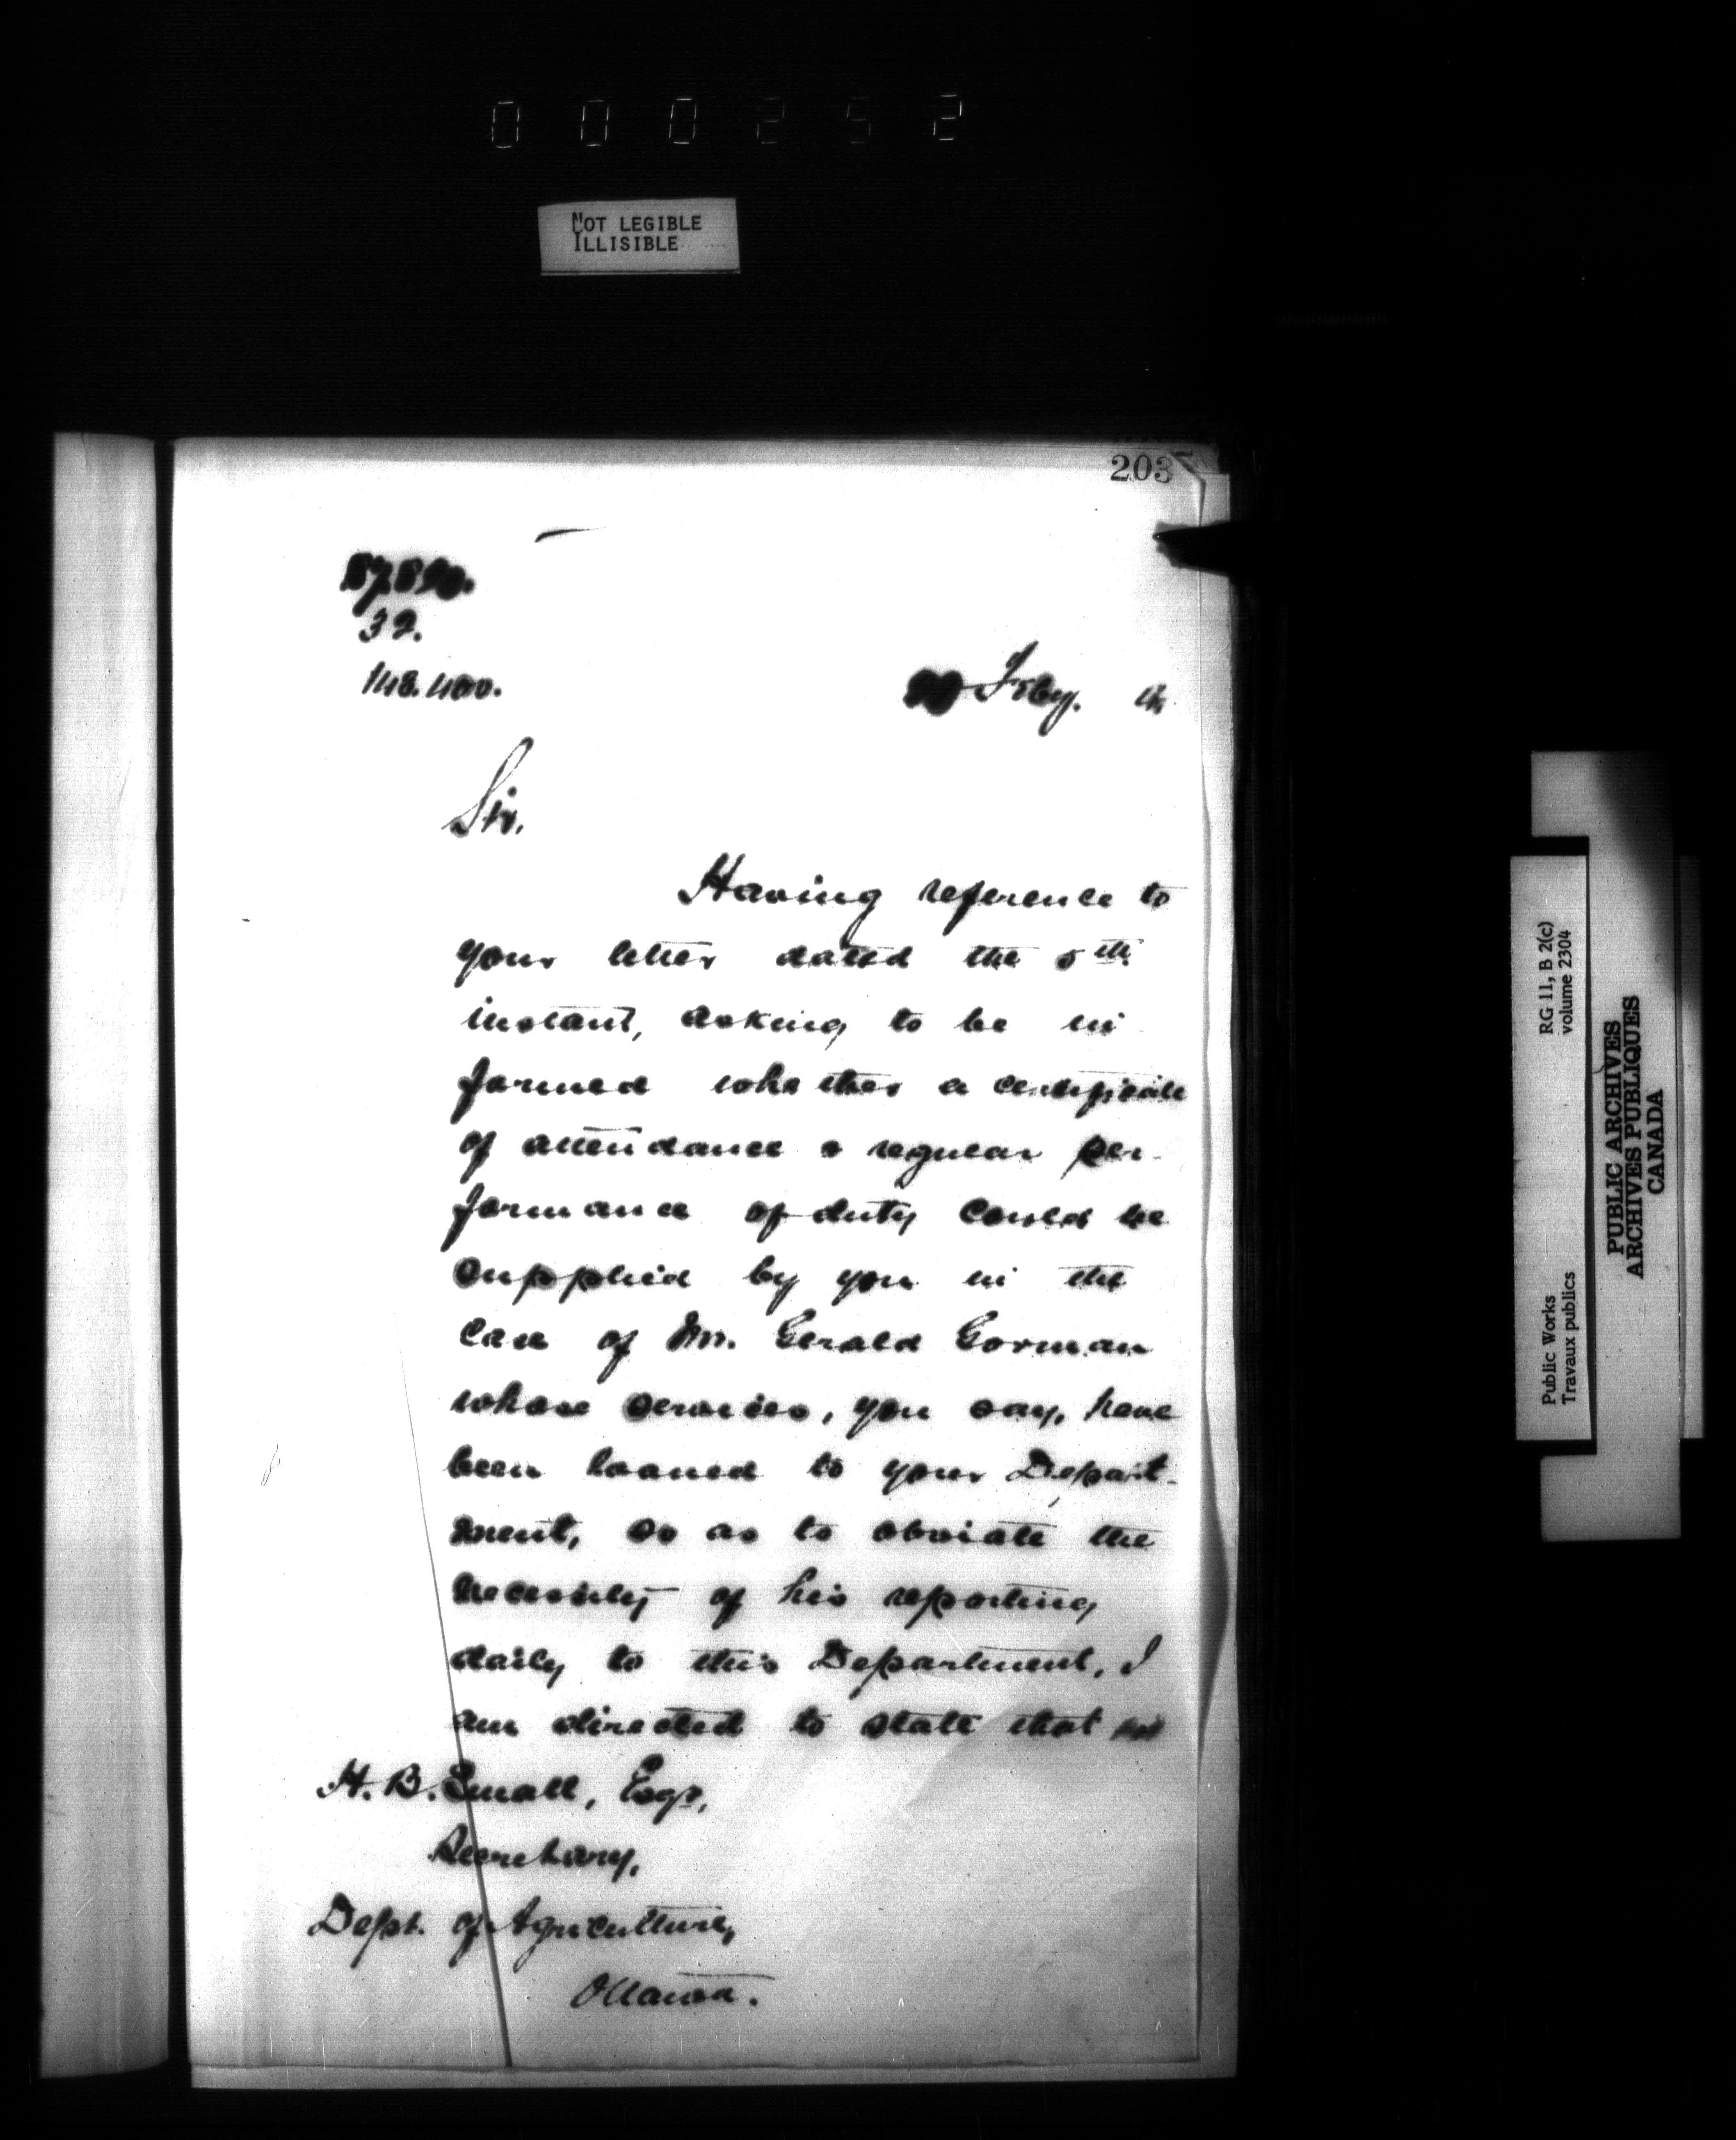 000252
NOT LEGIBLE
ILLISIBLE
203
32.
148.400.
Feby.
Sir,
Having reference to
your letter dated the 5th
instant, asking to be in
formed whether a certificate
of attendance & regular per-
formance of duty could be
supplied by you in the
case of Mr. Gerald Gorman
whose services, you say, have
been loaned to your Depart-
ment, so as to obviate the
necessity of his reporting
daily to this Department, I
am directed to state that
H. B. Small, Esqr,
Secretary,
Dept. of Agriculture,
Ottawa.
Public Works
Travaux publics
RG 11, B 2(c)
volume 2304
PUBLIC ARCHIVES
ARCHIVES PUBLIQUES
CANADA